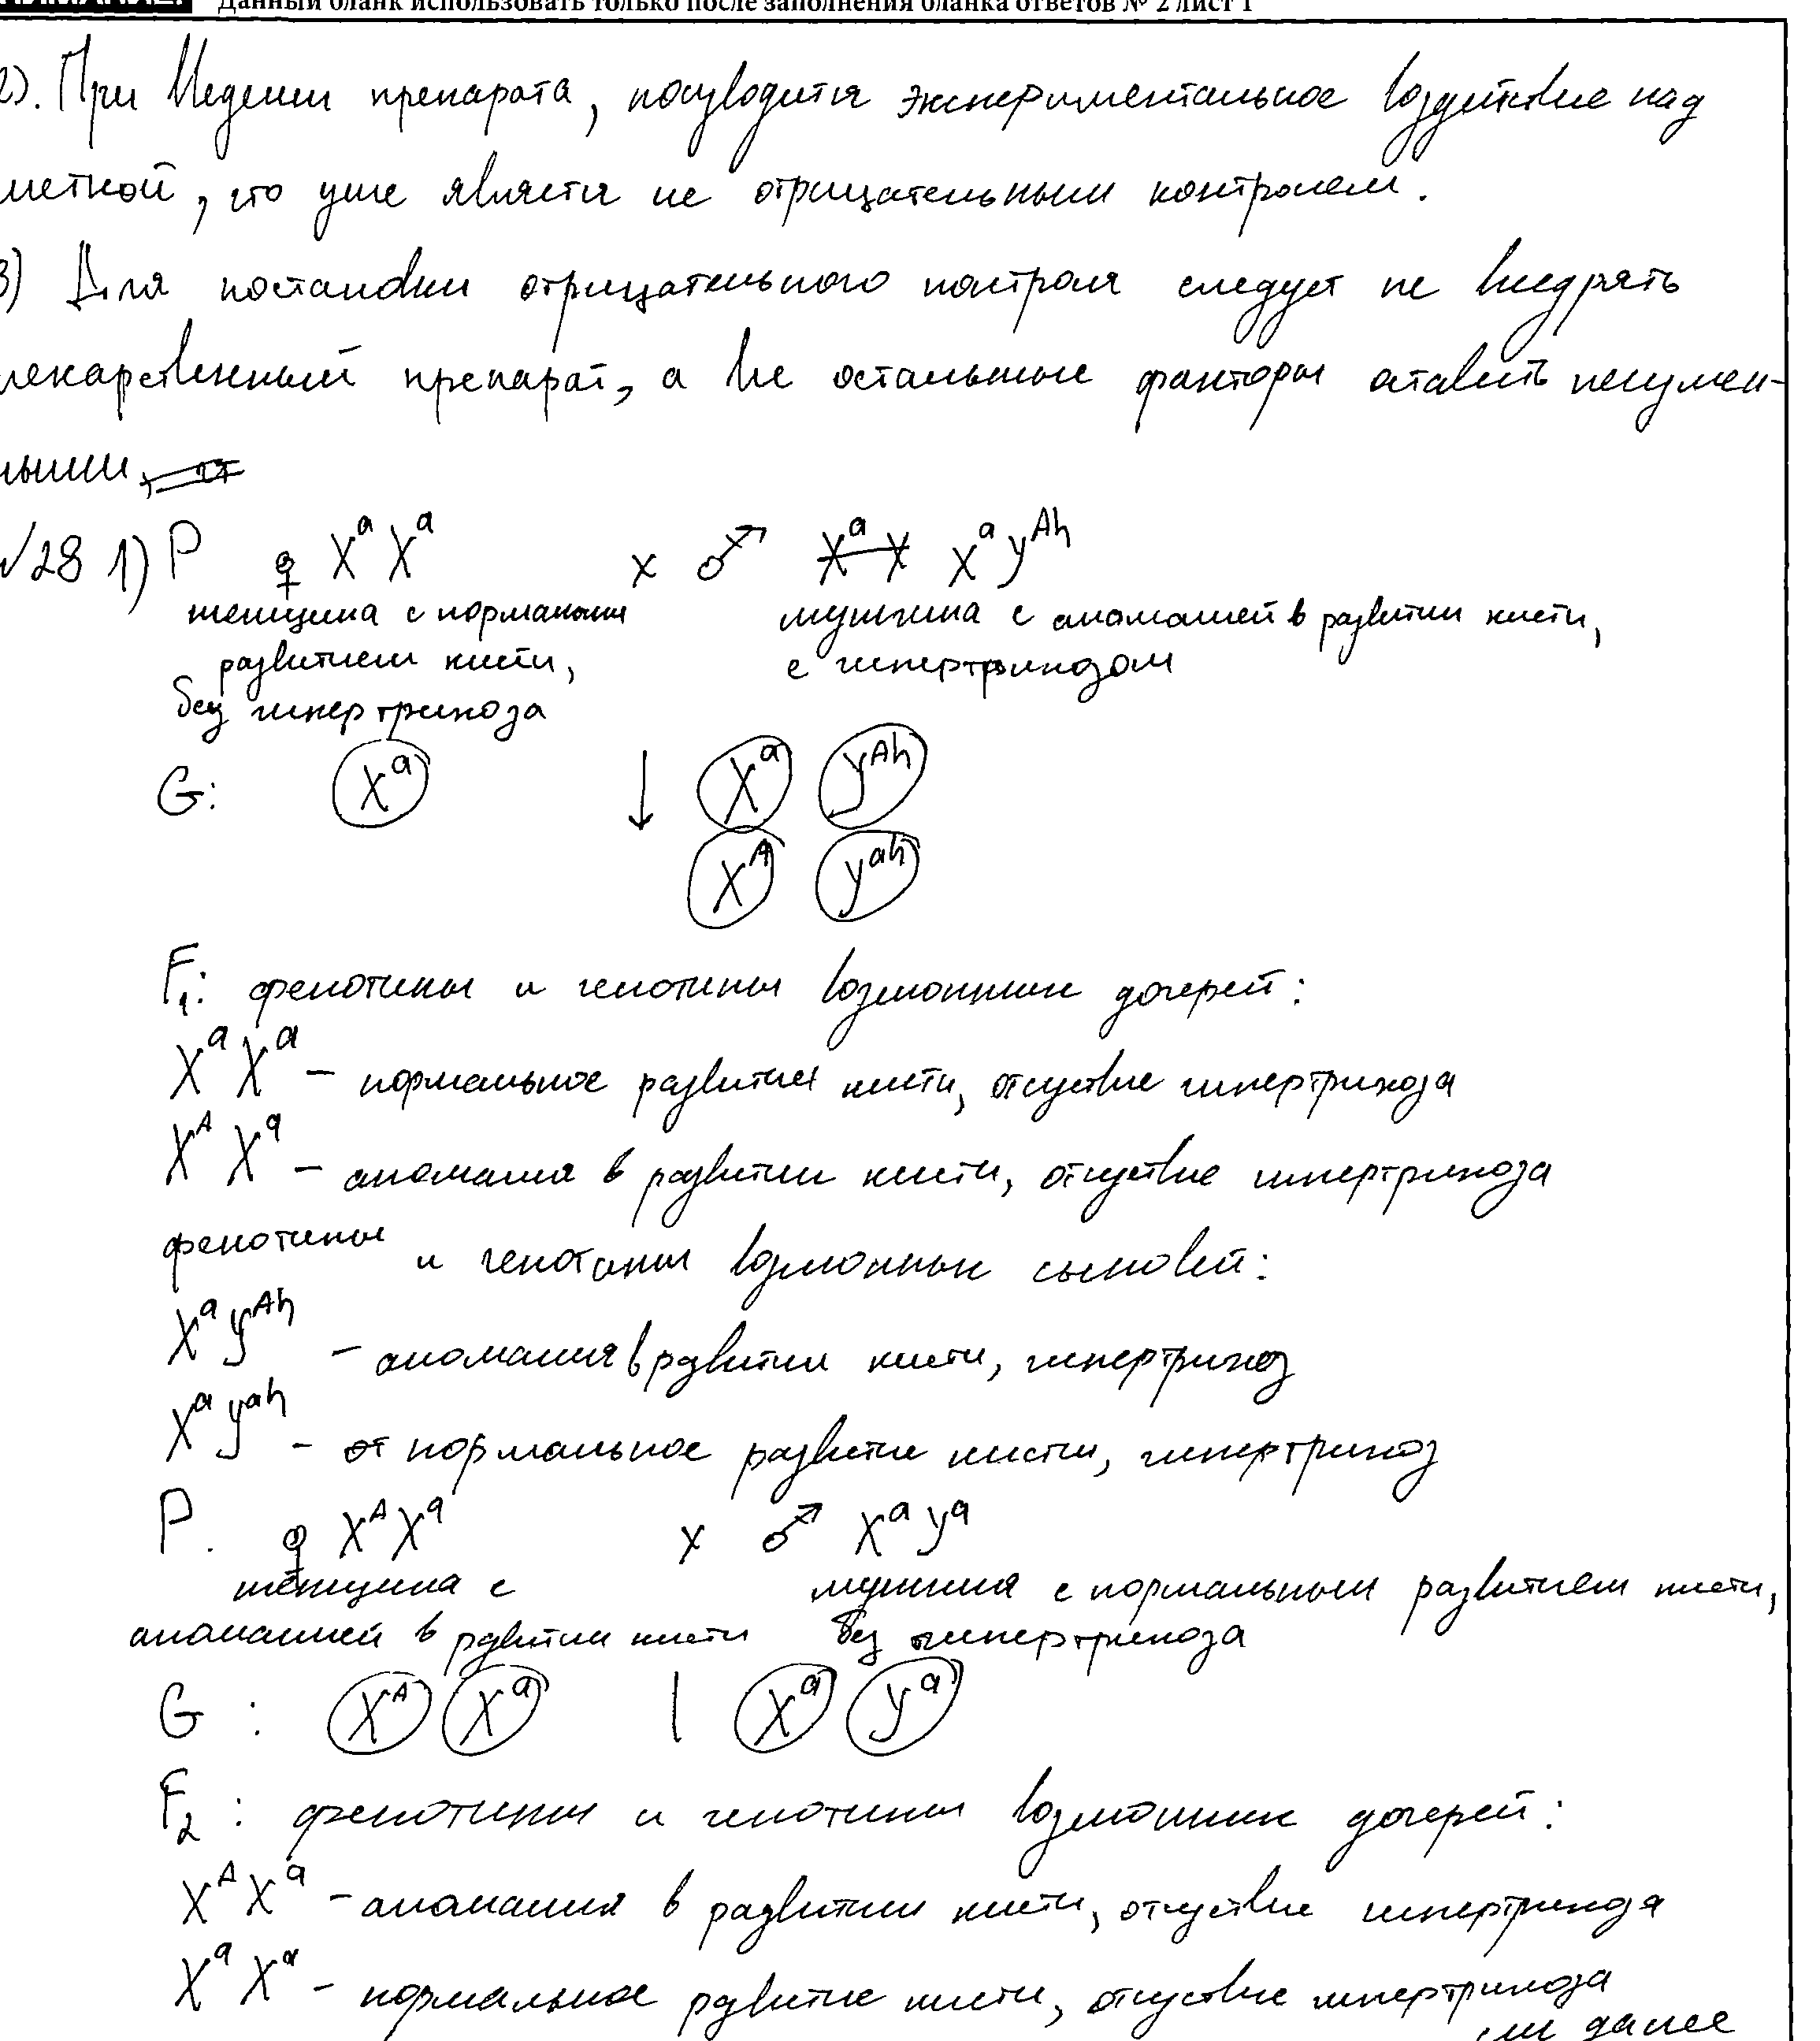 Данный бланк использовать только после заполнения бланка ответов № 2 лист 1
2). При введении препарата, производится экспериментальное воздействие над
меткой, что уже является не отрицательным контролем.
3) Для постановки отрицательного контроля следует не внедрять
лекарственный препарат, а все остальные факторы ставить неизмен-
ными.
№28 1) P ♀ XᵃXᵃ x ♂ XᵃYᴬʰ
женщина с нормальным мужчина с аномалией в развитии кисти,
развитием кисти, с гипертрихозом
без гипертрихоза
G: Xᵃ ↓ Xᵃ Yᴬʰ
Xᴬ Yᵃʰ
F₁: фенотипы и генотипы возможных дочерей:
XᵃXᵃ – нормальное развитие кисти, отсутствие гипертрихоза
XᴬXᵃ – аномалия в развитии кисти, отсутствие гипертрихоза
фенотипы и генотипы возможных сыновей:
XᵃYᴬʰ – аномалия в развитии кисти, гипертрихоз
XᵃYᵃʰ – нормальное развитие кисти, гипертрихоз
P. ♀ XᴬXᵃ x ♂ XᵃYᵃ
женщина с мужчина с нормальным развитием кисти,
аномалией в развитии кисти без гипертрихоза
G : Xᴬ Xᵃ | Xᵃ Yᵃ
F₂ : фенотипы и генотипы возможных дочерей:
XᴬXᵃ – аномалия в развитии кисти, отсутствие гипертрихоза
XᵃXᵃ – нормальное развитие кисти, отсутствие гипертрихоза
см далее